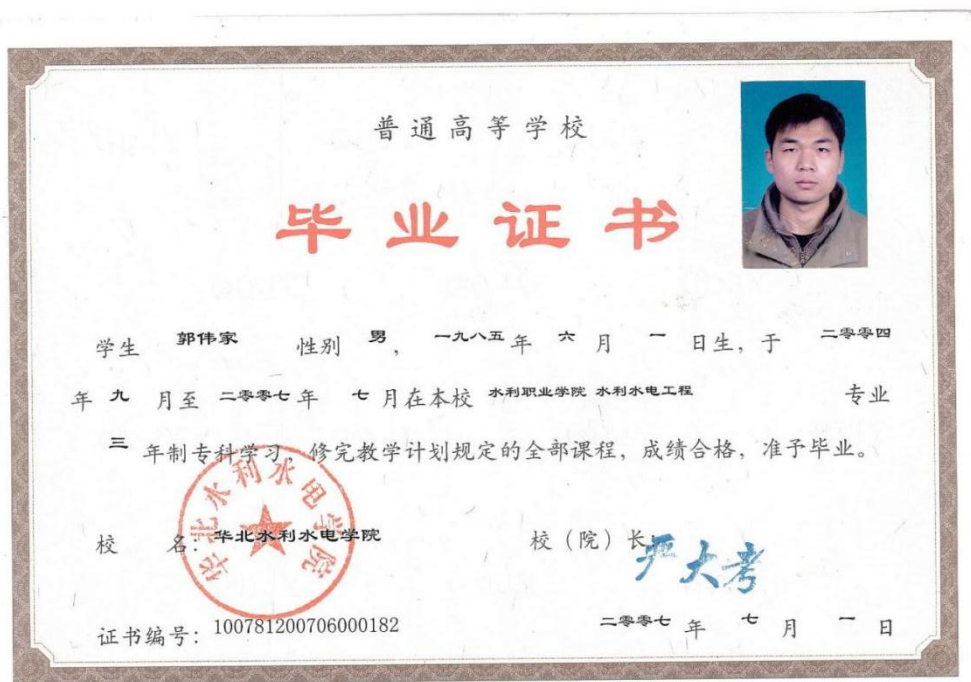 普通高等学校
毕业证书
学生 郭伟家 性别 男, 一九八五年 六 月 一 日生, 于 二零零四
年 九 月至 二零零七年 七月在本校 水利职业学院 水利水电工程 专业
三 年制专科学习, 修完教学计划规定的全部课程, 成绩合格, 准予毕业。
华北水利水电学院
校 名: 华北水利水电学院 校(院)长 严大考
证书编号: 100781200706000182 二零零七 年 七 月 一 日